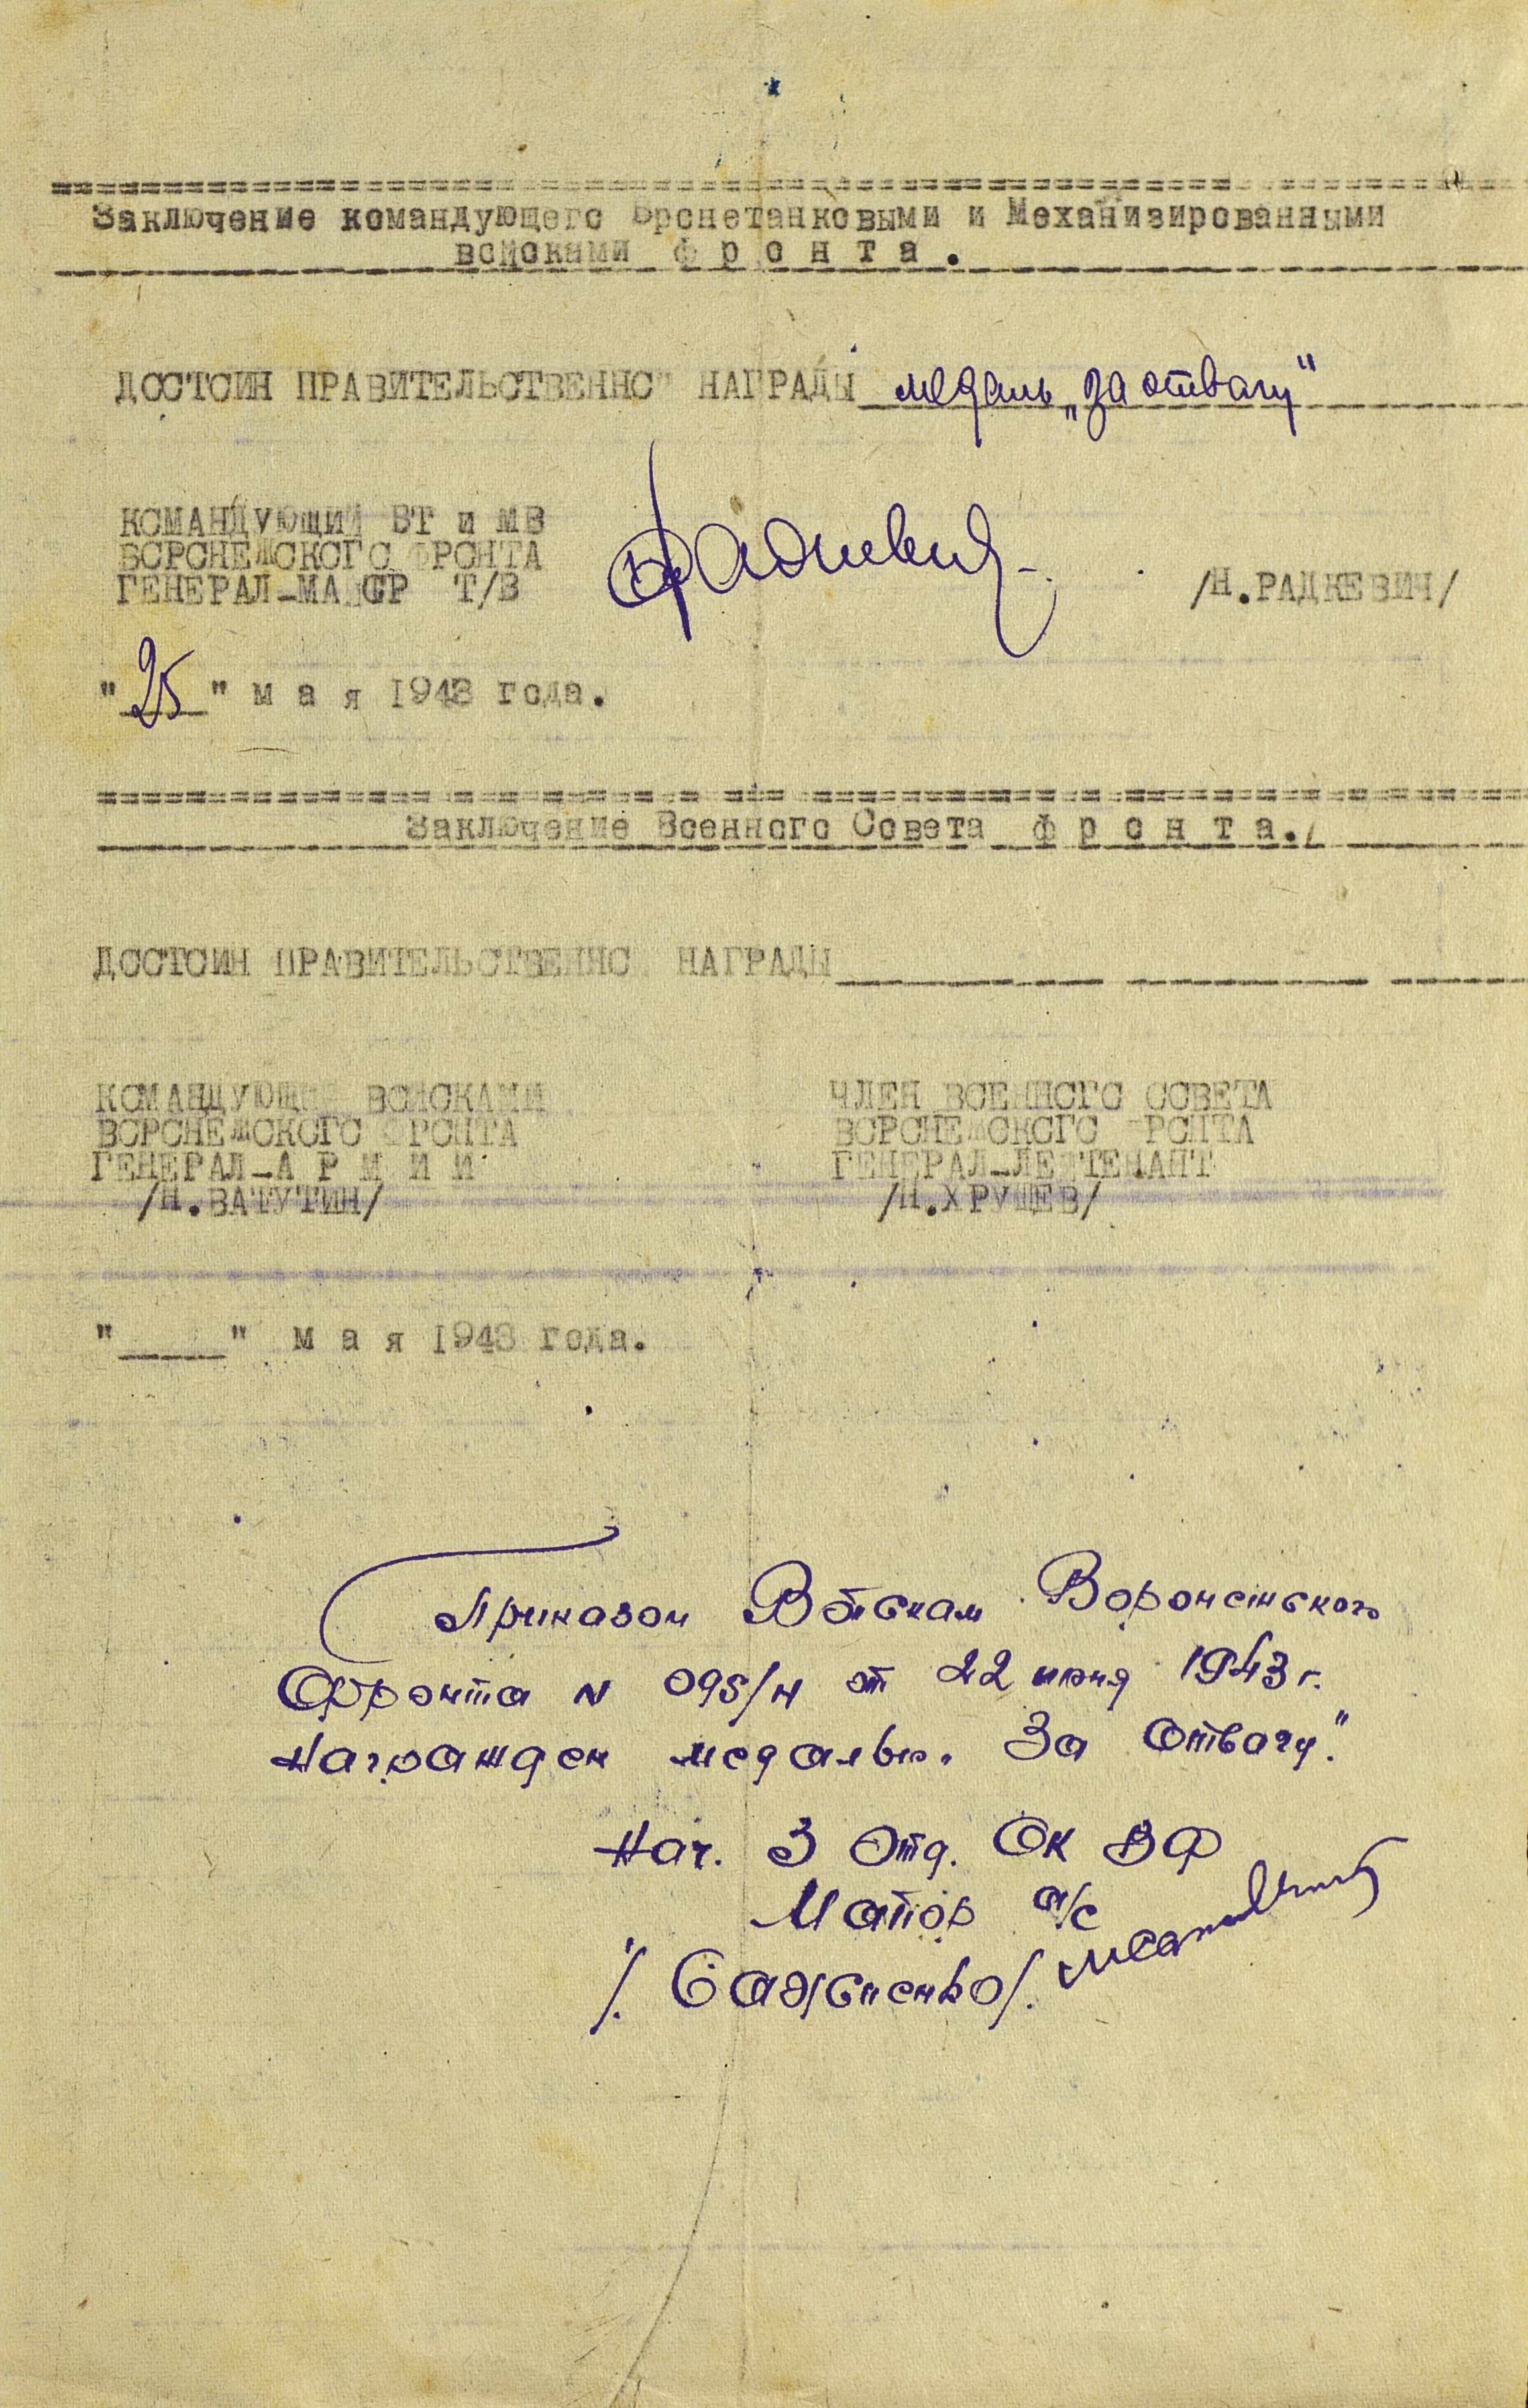 Заключение командующего Бронетанковыми и Механизированными
войсками фронта.
ДОСТОИН ПРАВИТЕЛЬСТВЕННОЙ НАГРАДЫ медаль „За отвагу"
КОМАНДУЮЩИЙ БТ и МВ
ВОРОНЕЖСКОГО ФРОНТА
ГЕНЕРАЛ-МАЙОР Т/В
/Н.РАДКЕВИЧ/
"25" мая 1943 года.
Заключение Военного Совета фронта.
ДОСТОИН ПРАВИТЕЛЬСТВЕННОЙ НАГРАДЫ
КОМАНДУЮЩИЙ ВОЙСКАМИ
ВОРОНЕЖСКОГО ФРОНТА
ГЕНЕРАЛ-АРМИИ
/Н.ВАТУТИН/
ЧЛЕН ВОЕННОГО СОВЕТА
ВОРОНЕЖСКОГО ФРОНТА
ГЕНЕРАЛ-ЛЕЙТЕНАНТ
/Н.ХРУЩЕВ/
"____" мая 1943 года.
Приказом Войскам Воронежского
Фронта N 095/н от 22 июня 1943 г.
Награжден медалью „За Отвагу".
Нач. 3 Отд. ОК ВФ
Майор а/с